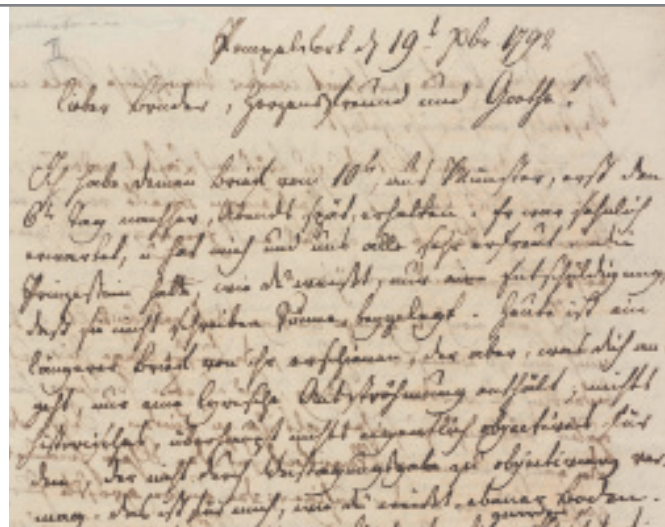 II
Pempelfort d 19t Xbr 1792
Lieber Bruder, Herzensfreund und Goethe!
Ich habe deinen Brief vom 10ten, aus Münster, erst den
6ten Tag nachher, Abends spät, erhalten. Er war sehnlich
erwartet, u hat mich und uns alle sehr erfreut. die
Prinzessin hatte, wie du weißt, nur eine Entschuldigung,
daß sie nicht schreiben könne, beygelegt. Heute ist ein
längerer Brief von ihr erschienen, der aber, was dich an
geht, nur eine lyrische Ausströhmung enthält, nichts
historisches, überhaupt nichts eigentlich objectives für
den, der nicht durch Weissagungsgabe zu objectivirung ver
mag. das ist für mich, wie du weißt, ebener Boden.